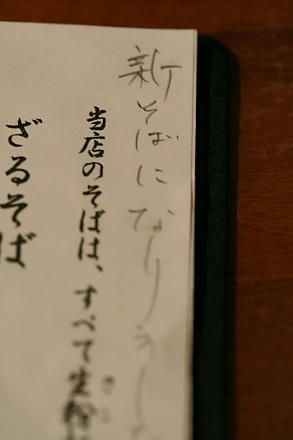 新そばになりまし
当店のそばは、すべて生粉
ざるそば